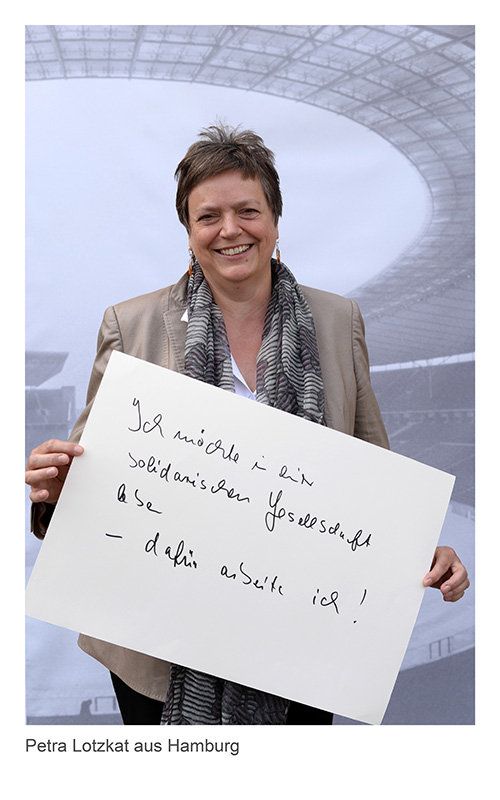 Ich möchte in einer
solidarischen Gesellschaft
leben
– dafür arbeite ich!
Petra Lotzkat aus Hamburg